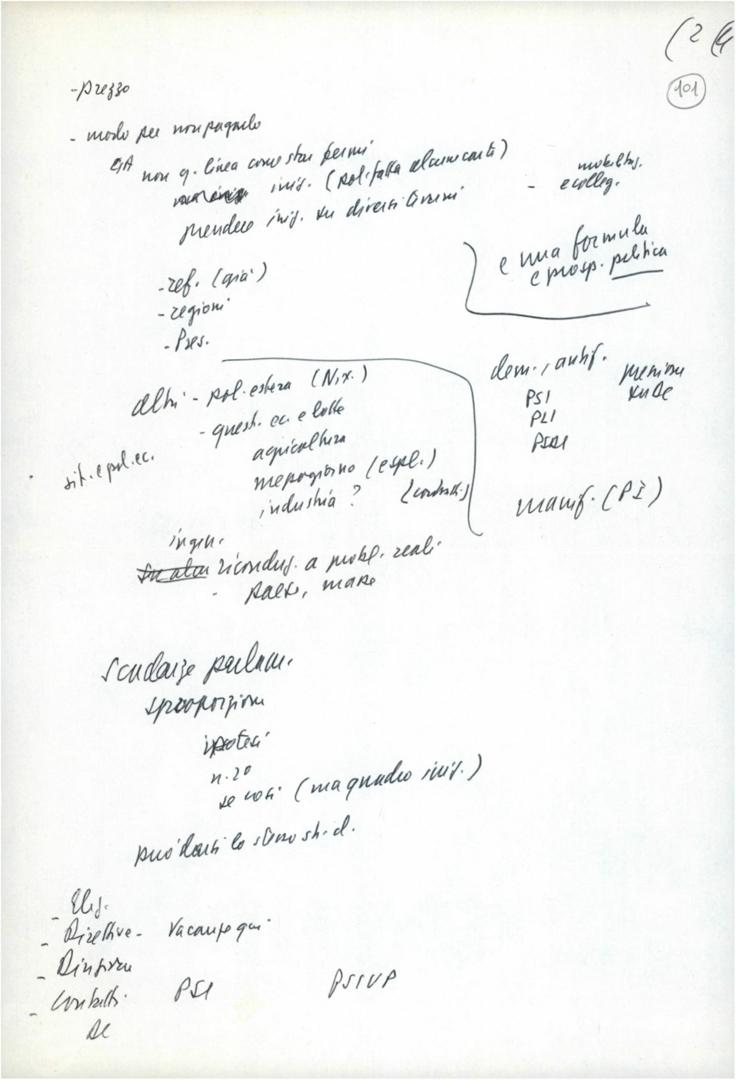 (2
101
- prezzo
- modo per non pagarlo
GA non q. linea come star fermi
iniz. (pol. fatta alcuni conti)
prendere iniz. su diversi terreni
- mobilitaz.
e colleg.
- ref. (già)
- regioni
- Pres.
e una formula
e prosp. politica
altri - pol. estera (Nix.)
- quest. ec. e lotte
agricoltura
mezzogiorno (espl.)
industria? (contratt.)
sit. e pol. ec.
dem., antif.
PSI
PLI
PSDI
pressione
su DC
manif. (PI)
riconduz. a probl. reali
- patto, mare
scadenze parlam.
sproporzione
ipotesi
n. 2°
se così (ma quadro iniz.)
può darsi lo stesso
- Elez.
- Direttive - vacanze qui
-
- Contatti PSI PSIUP
DC